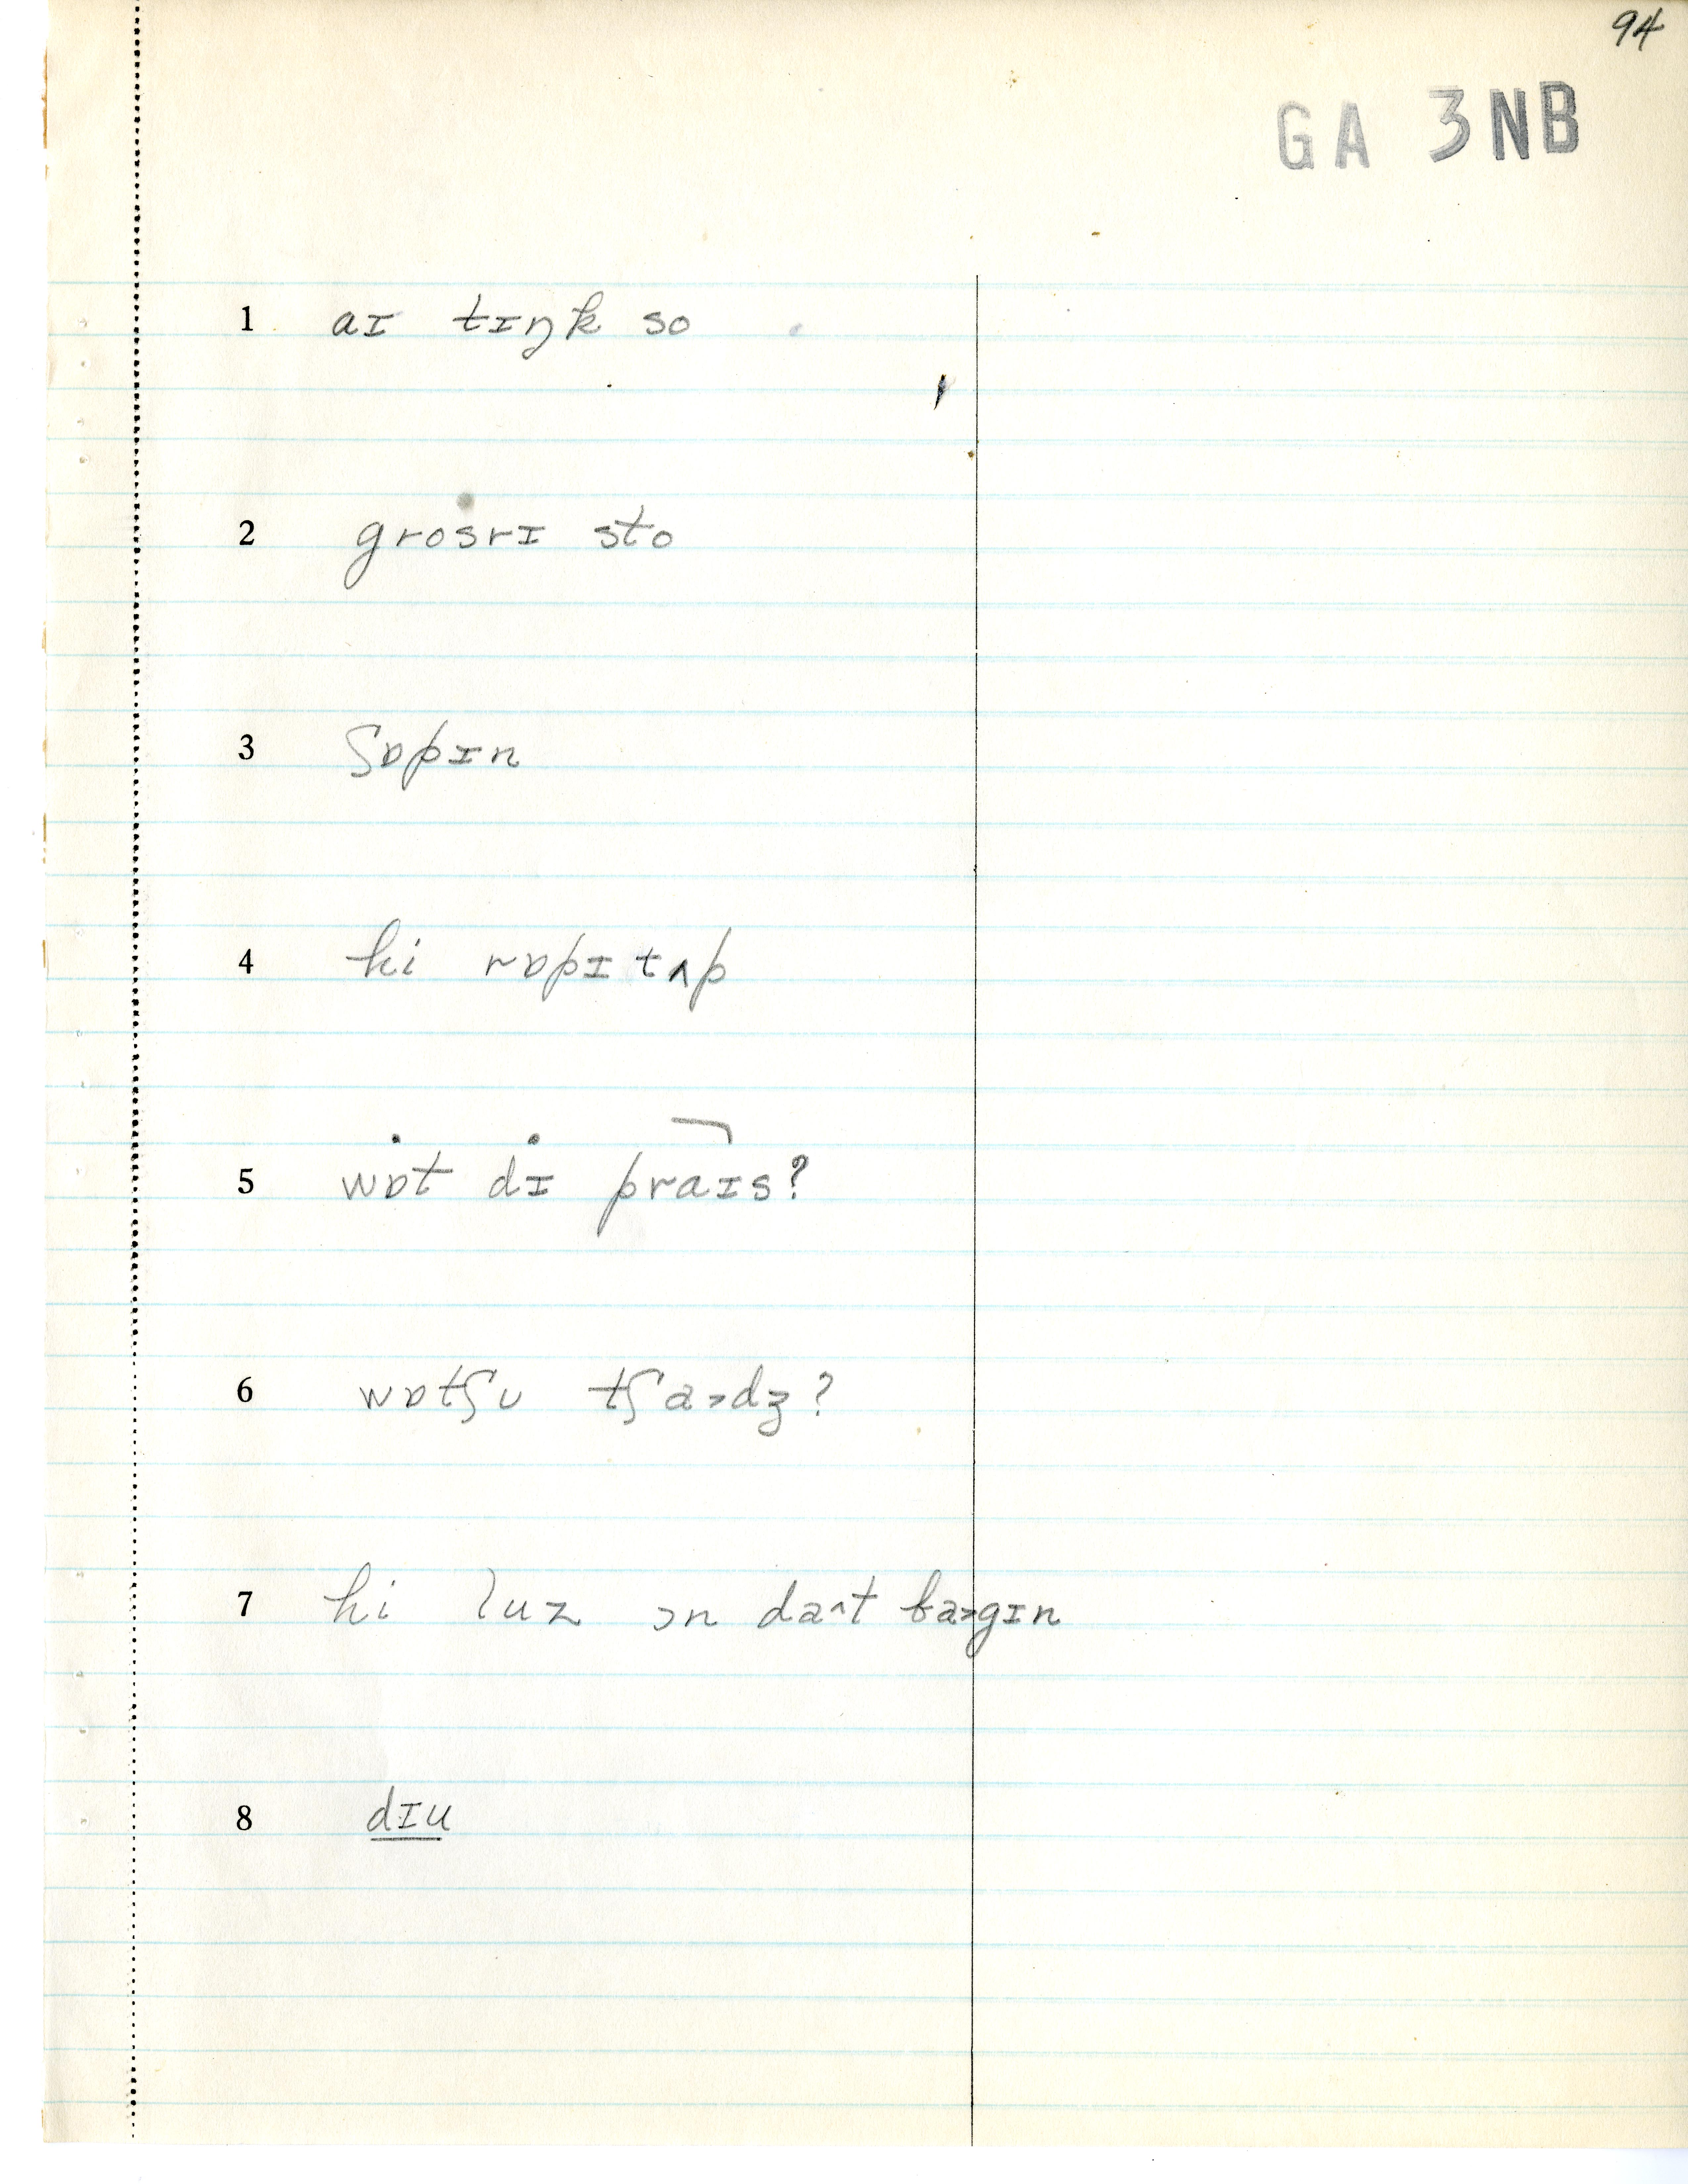 94
GA 3NB
1 aɪ tɪŋk so
2 grosrɪ sto
3 ʃɒpɪn
4 hi rɒpɪtʌp
5 wɒt dɪ praɪs?
6 wɒtʃʊ tʃa˃dʒ?
7 hi luz ɔn da˄t ba˃gɪn
8 dɪu